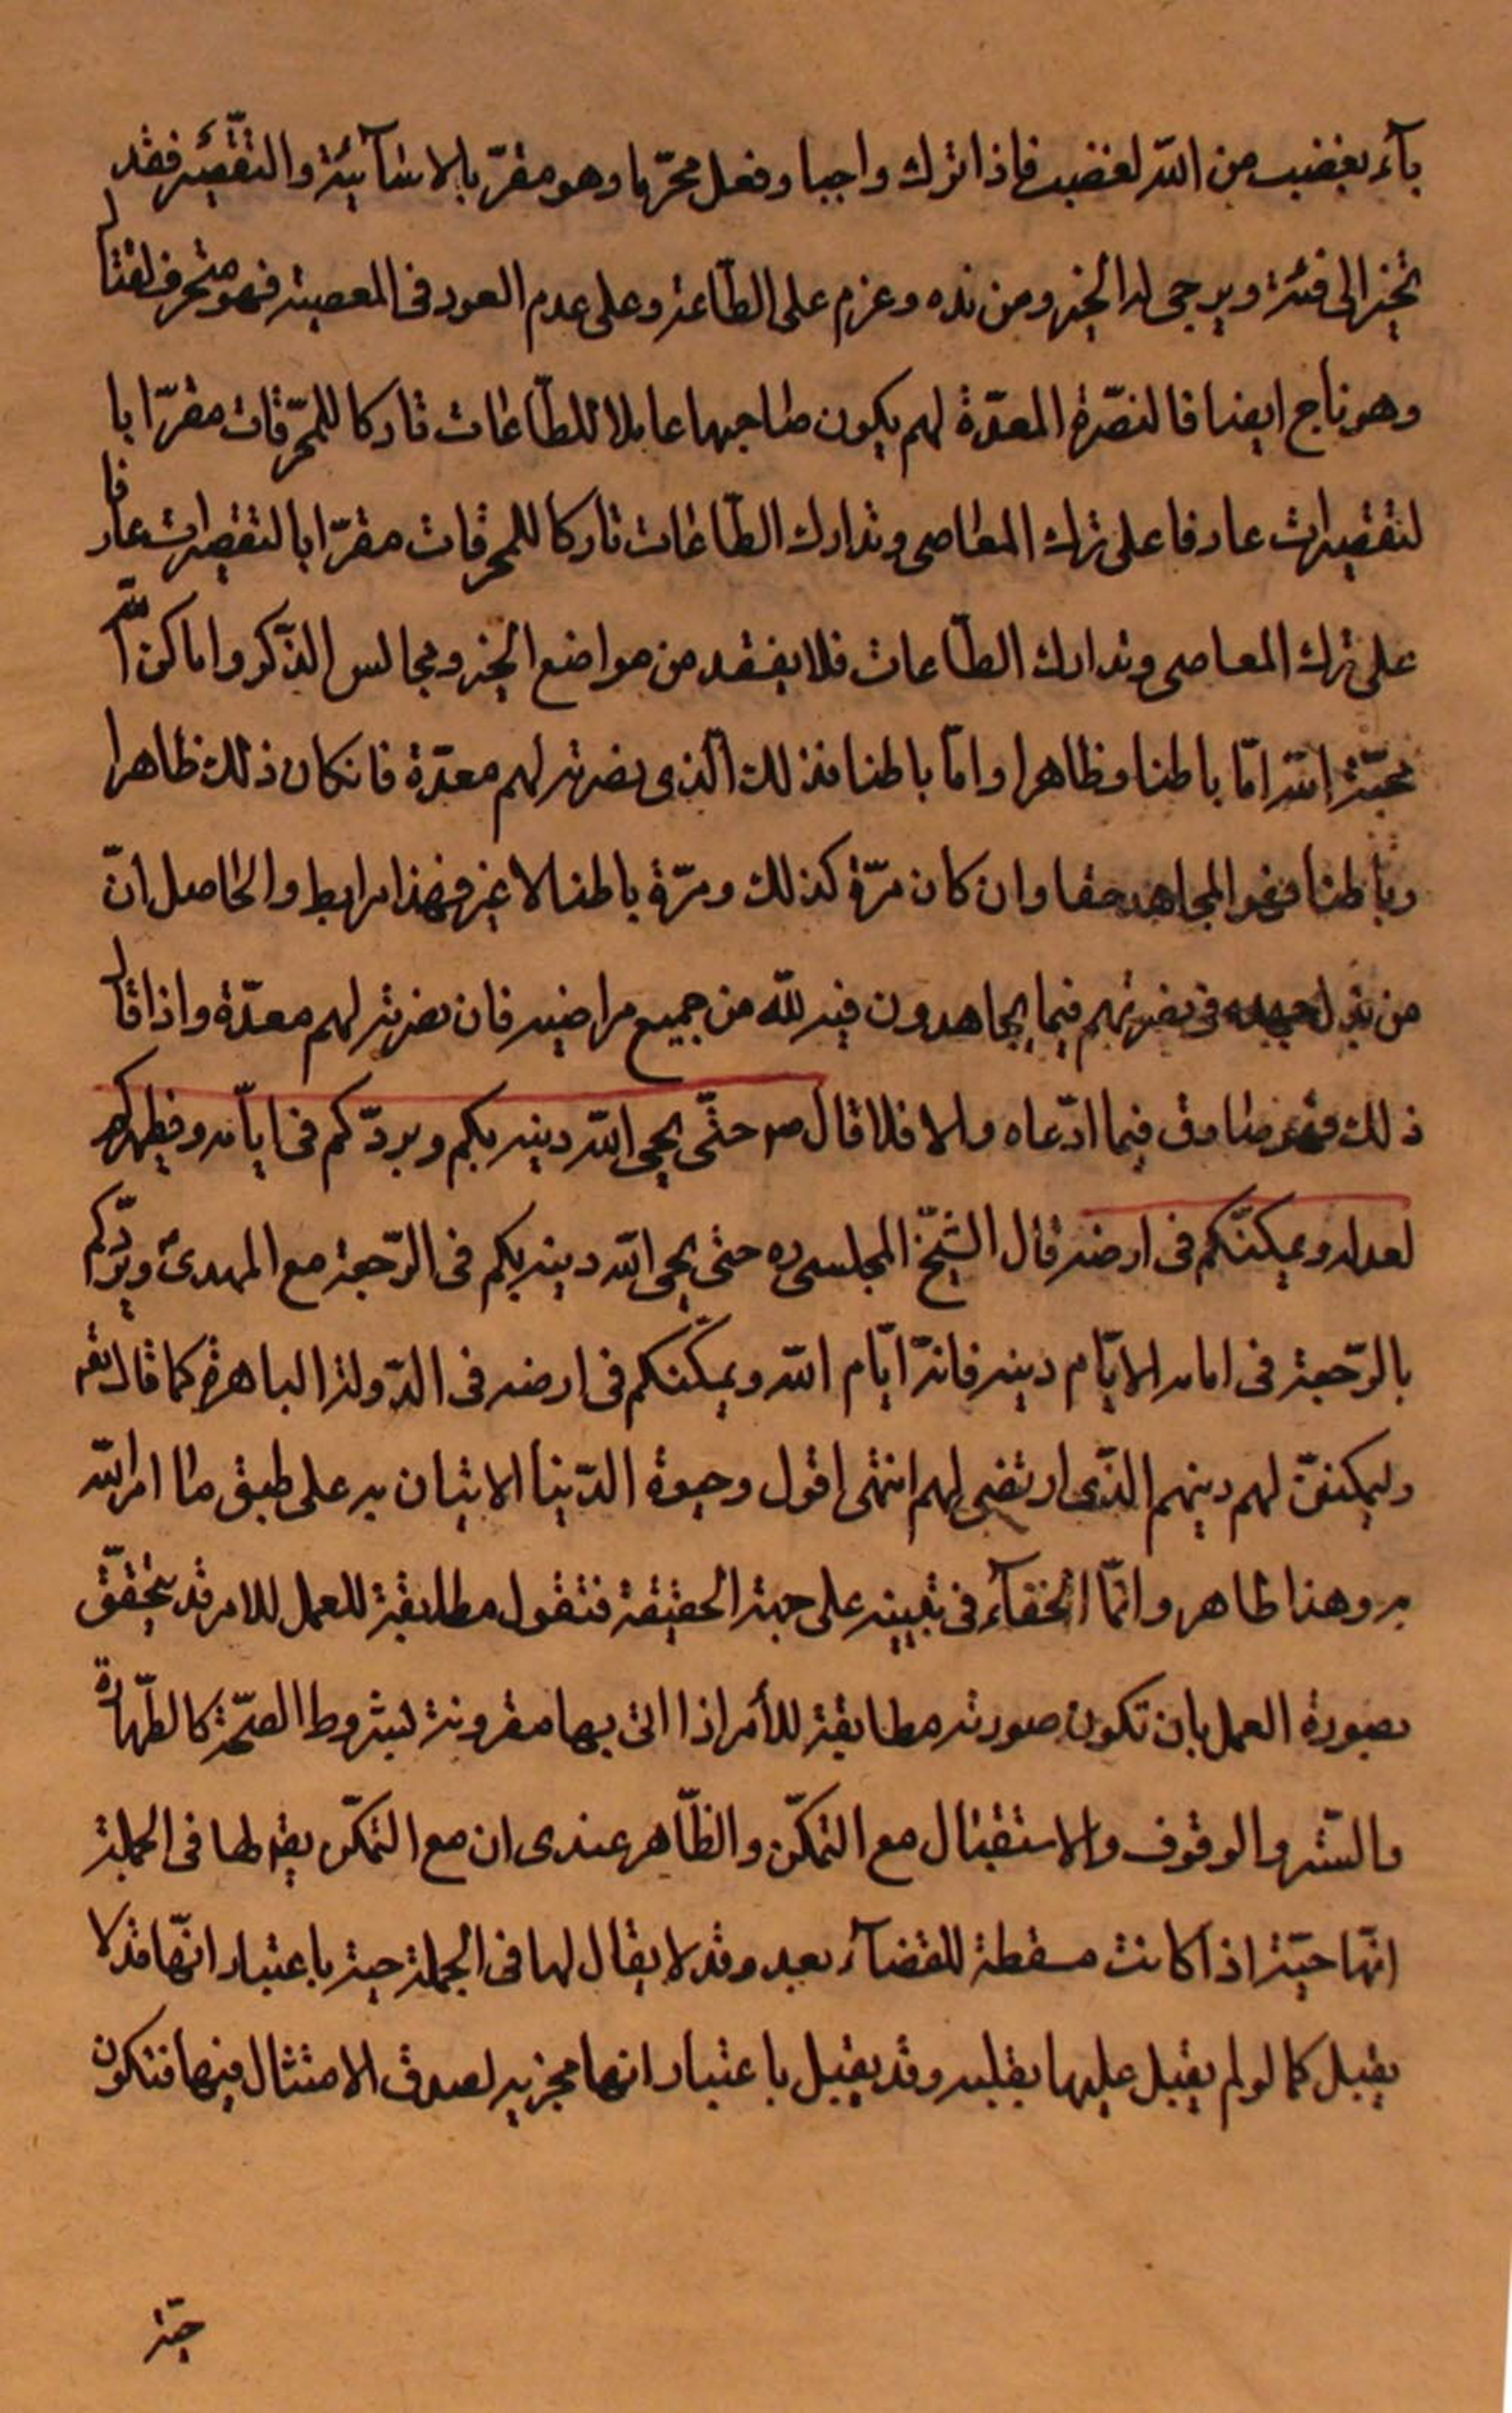 بآء بغضب من الله لغضب فاذا ترك واجبا وفعل محرّما وهو مقرّ بالاسآئة والتقصير فقد
تحيز الى فئة ويرجى له الخير ومن ندم وعزم على الطّاعة وعلى عدم العود فى المعصية فهو متحرف لقتال
وهو ناج ايضا فالنصرة المعدّة لهم يكون صاحبها عاملا للطّاعات تاركا للمحرّمات مقرّا با
لتقصيرات عازما على ترك المعاصى وتدارك الطّاعات تاركا للمحرمات مقرّا بالتقصيرات عازما
على ترك المعاصى وتدارك الطّاعات فلا يفقد من مواضع الخير ومجالس الذّكر واماكن
محبّة الله امّا باطنا وظاهرا وامّا باطنا فذلك الّذى نصرته لهم معدّة فانكان ذلك ظاهرا
وباطنا فهو المجاهد حقا وان كان مرّة كذلك ومرّة باطنا لا غير فهذا مرابط والحاصل انّ
من بذل جهده فى نصرتهم فيما يجاهدون فيه لله من جميع مراضيه فان نصرته لهم معدّة واذا قال
ذلك فهو صادق فيما ادّعاه والا فلا قال ص حتّى يحيى الله دينه بكم ويردّكم فى ايّامه ويظهركم
لعدله ويمكنّكم فى ارضه قال الشّيخ المجلسى ره حتى يحيى الله دينه بكم فى الرّجعة مع المهدى ويردّكم
بالرّجعة فى ايامه لايّام دينه فانّه ايّام الله ويمكّنكم فى ارضه فى الدّولة الباهرة كما قال تعم
وليمكننّ لهم دينهم الذّى ارتضى لهم انتهى اقول وحيوة الدّين الاتيان به على طبق ما امر الله
به وهذا ظاهر وانمّا الخفآء فى تبيينه على جهة الحقيقة فنقول مطابقة للعمل للامر قد يتحقّق
بصورة العمل بان تكون صورته مطابقة للأمر اذا اتى بها مقرونة بشروط الصّحة كالطّهارة
والسّتر والوقوف والاستقبال مع التمكّن والظّاهر عندى ان مع التمكّن يقال لها فى الجملة
انهّا حيّة اذا كانت مسقطة للقضآء بعد وقد لا يقال لها فى الجملة حية باعتبار انهّا قد لا
يقبل كما لو لم يقبل عليها بقلبه وقد يقبل باعتبار انها مجزيه لصدق الامتثال فيها فتكون
حيّة